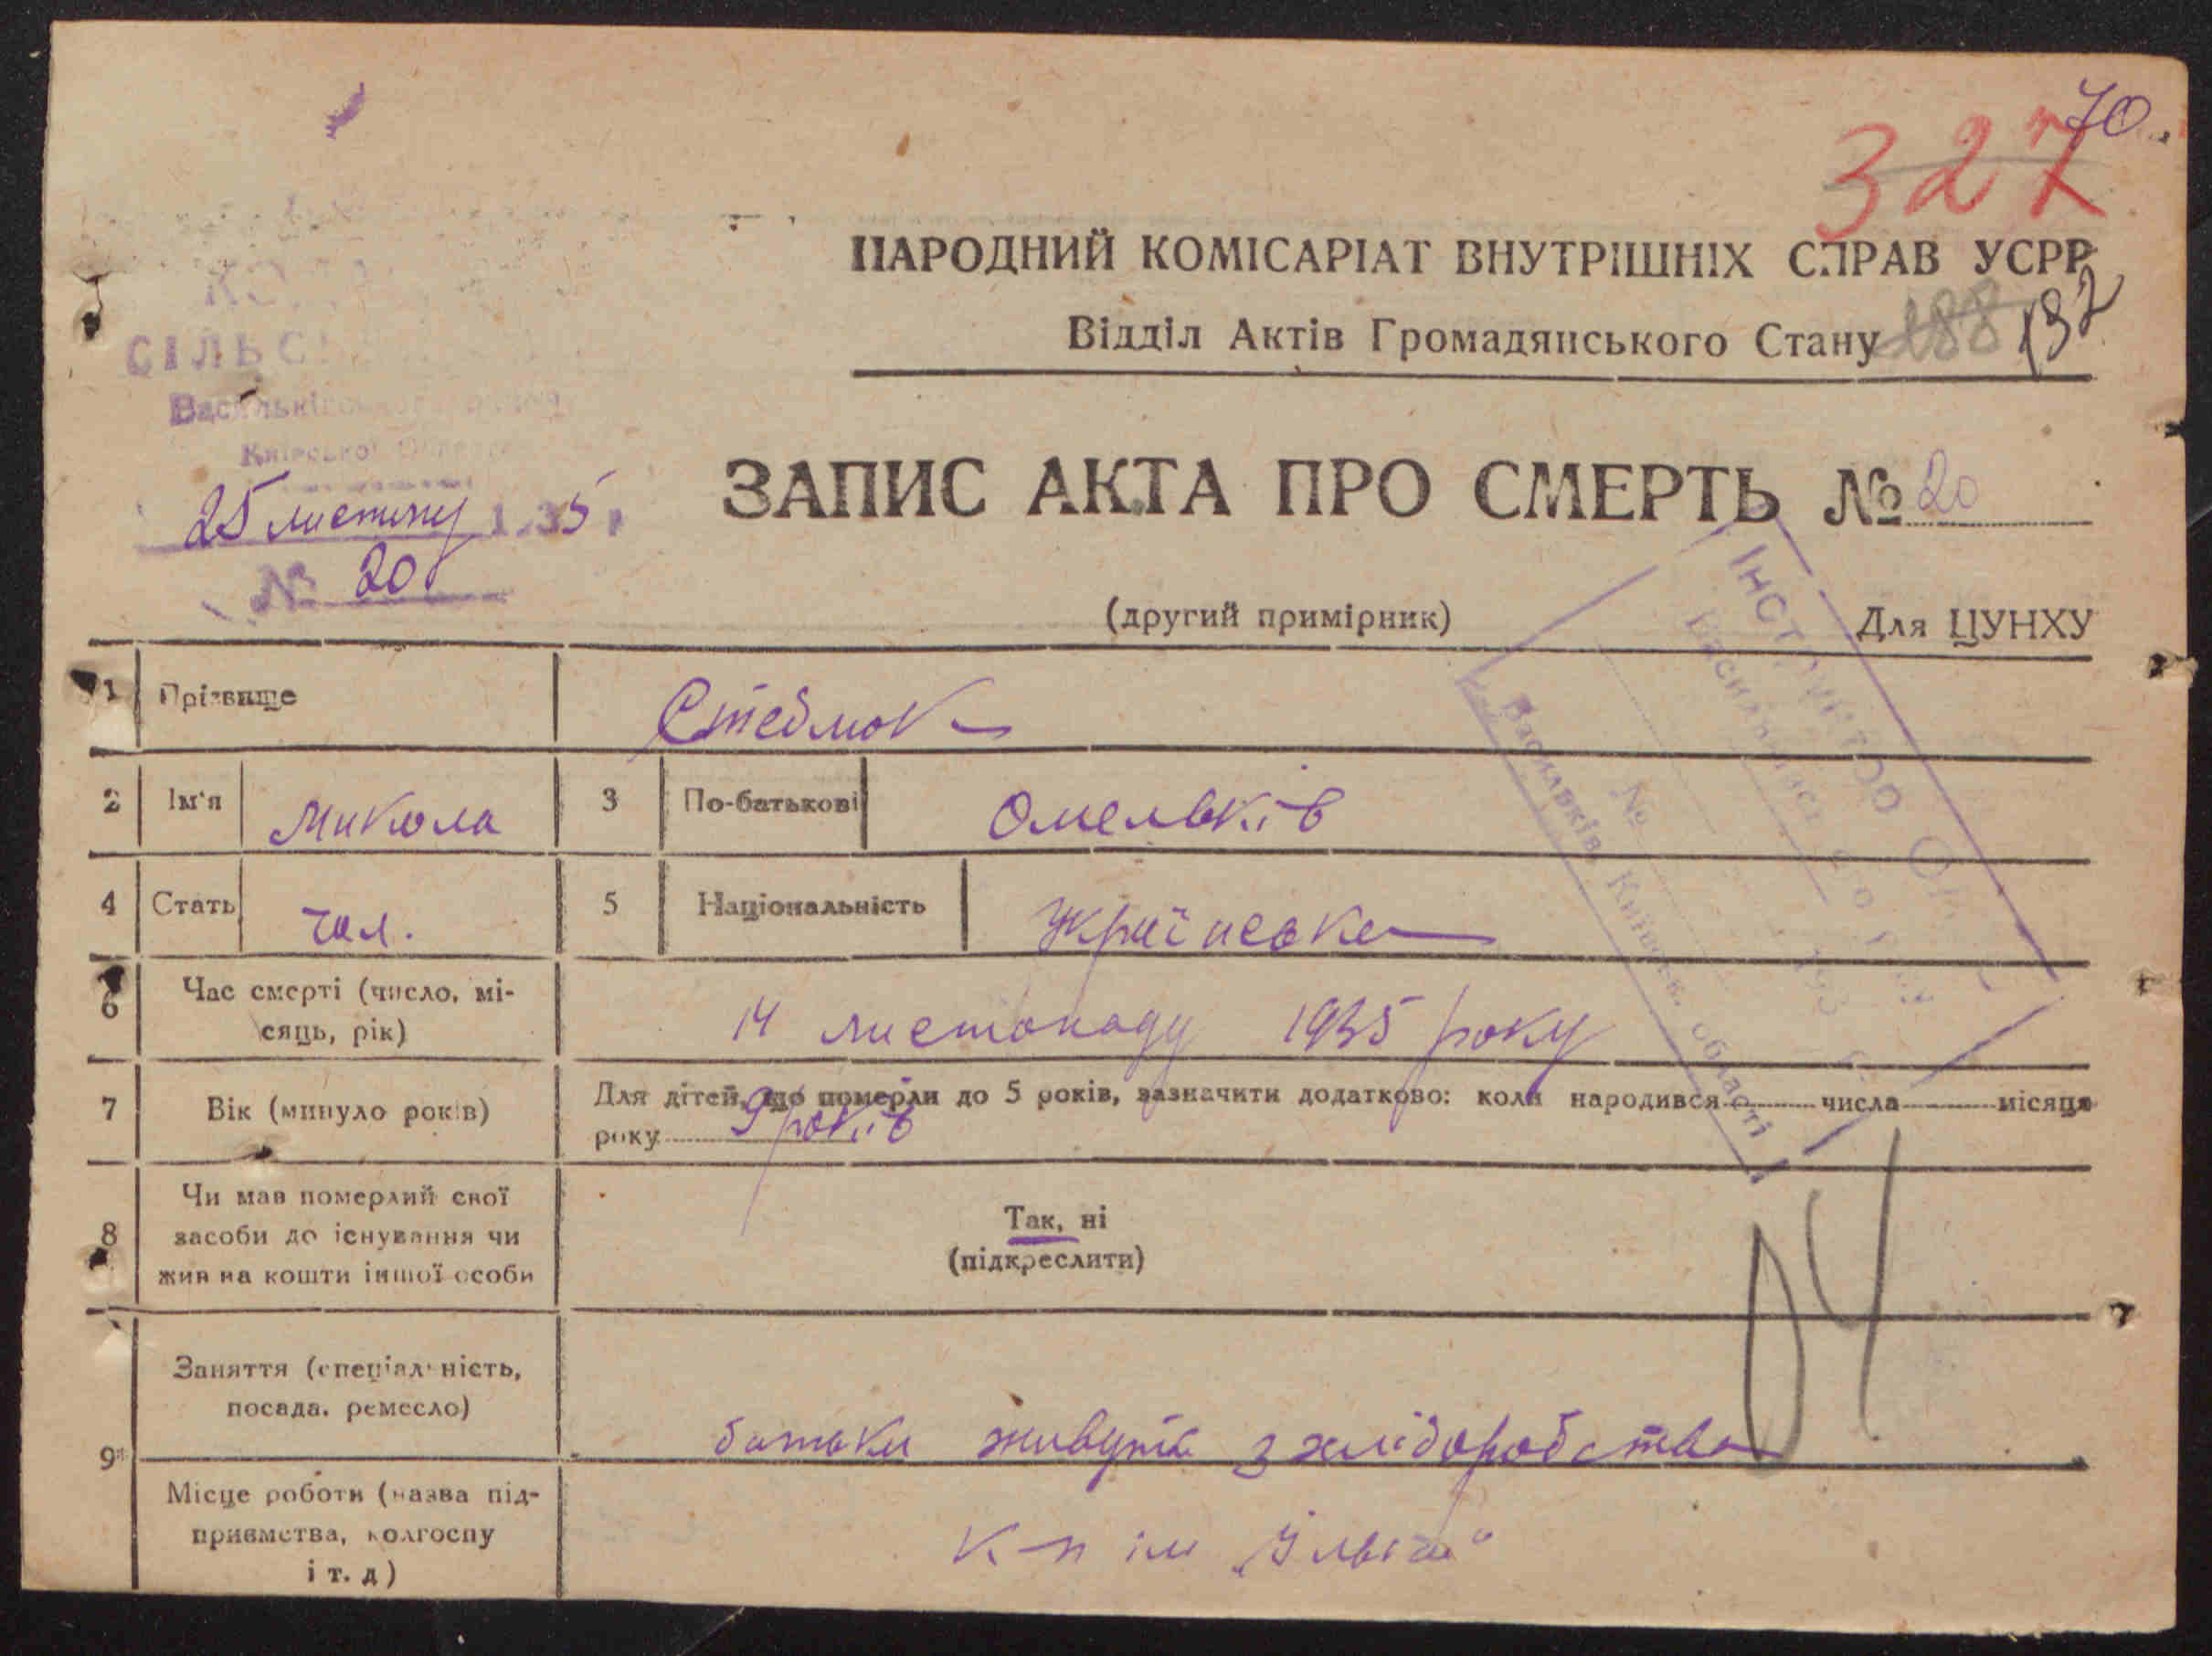 70.
327
НАРОДНИЙ КОМІСАРІАТ ВНУТРІШНІХ СПРАВ УСРР
Відділ Актів Громадянського Стану 188 192
СІЛЬС
Васильківського району
Київської Області
25 листопад 1935 р
№ 20
ЗАПИС АКТА ПРО СМЕРТЬ № 20
(другий примірник) Для ЦУНХУ
Інст
Васильків, Київськ. області
№
1 Прізвище Стебмок
2 Ім'я Микола 3 По-батькові Омельків
4 Стать чол. 5 Національність Українська
6 Час смерті (число, мі-
сяць, рік) 14 листопаду 1935 року
7 Вік (минуло років) Для дітей, що померли до 5 років, зазначити додатково: коли народився числа місяця
року 9 років
8 Чи мав померлий свої
засоби до існування чи
жив на кошти іншої особи
Так, ні
(підкреслити)
04
9 Заняття (спеціальність,
посада, ремесло) батьки живуть з хліборобства
Місце роботи (назва під-
приємства, колгоспу
і т. д) К-п ім „Ільіча"